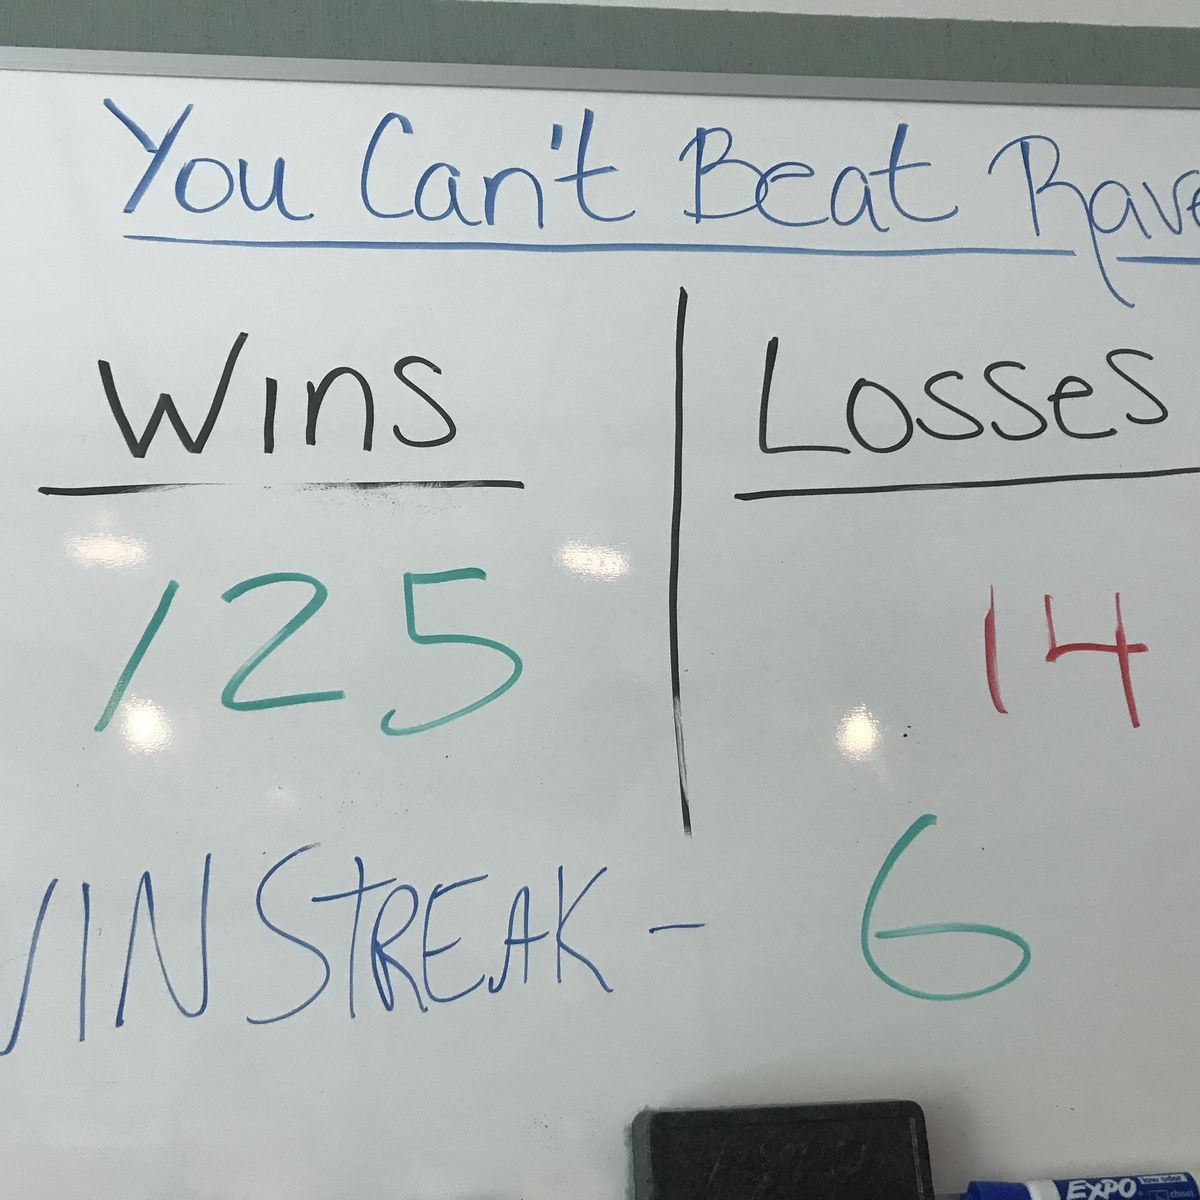 You Can't Beat Rave
Wins Losses
125 14
WIN STREAK - 6
EXPO
low odor